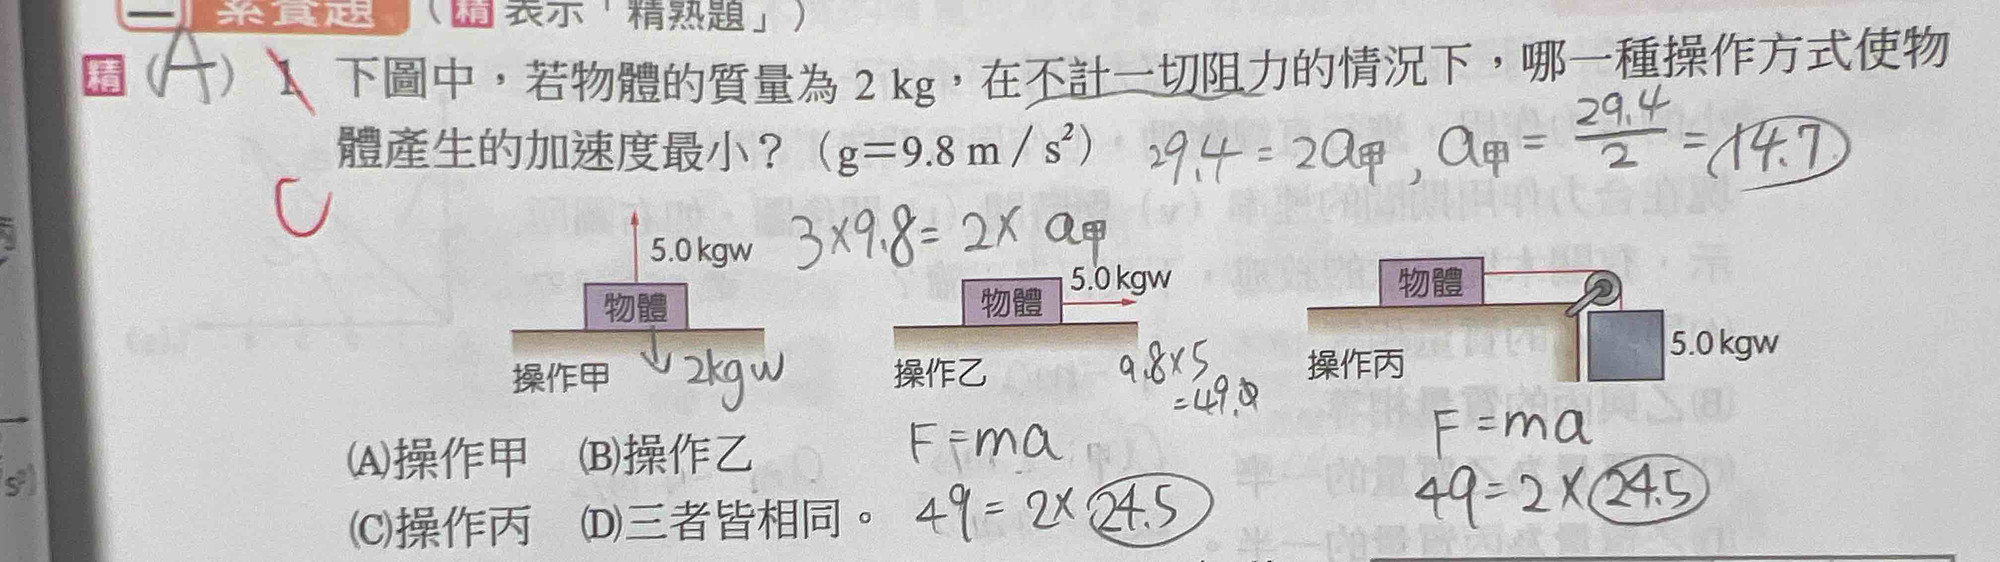 二 素養題 （精 表示「精熟題」）
精 (A) 1 下圖中，若物體的質量為 2 kg，在不計一切阻力的情況下，哪一種操作方式使物
體產生的加速度最小？（g＝9.8 m／s²） 29.4 = 2a甲 , a甲 = 29.4/2 = 14.7
C
5.0 kgw 3×9.8 = 2× a甲
物體 物體 5.0 kgw 物體
操作甲 2kgw 操作乙 9.8×5 操作丙 5.0 kgw
=49.0
(A)操作甲 (B)操作乙 F=ma F=ma
(C)操作丙 (D)三者皆相同。 49=2×24.5 49=2×24.5